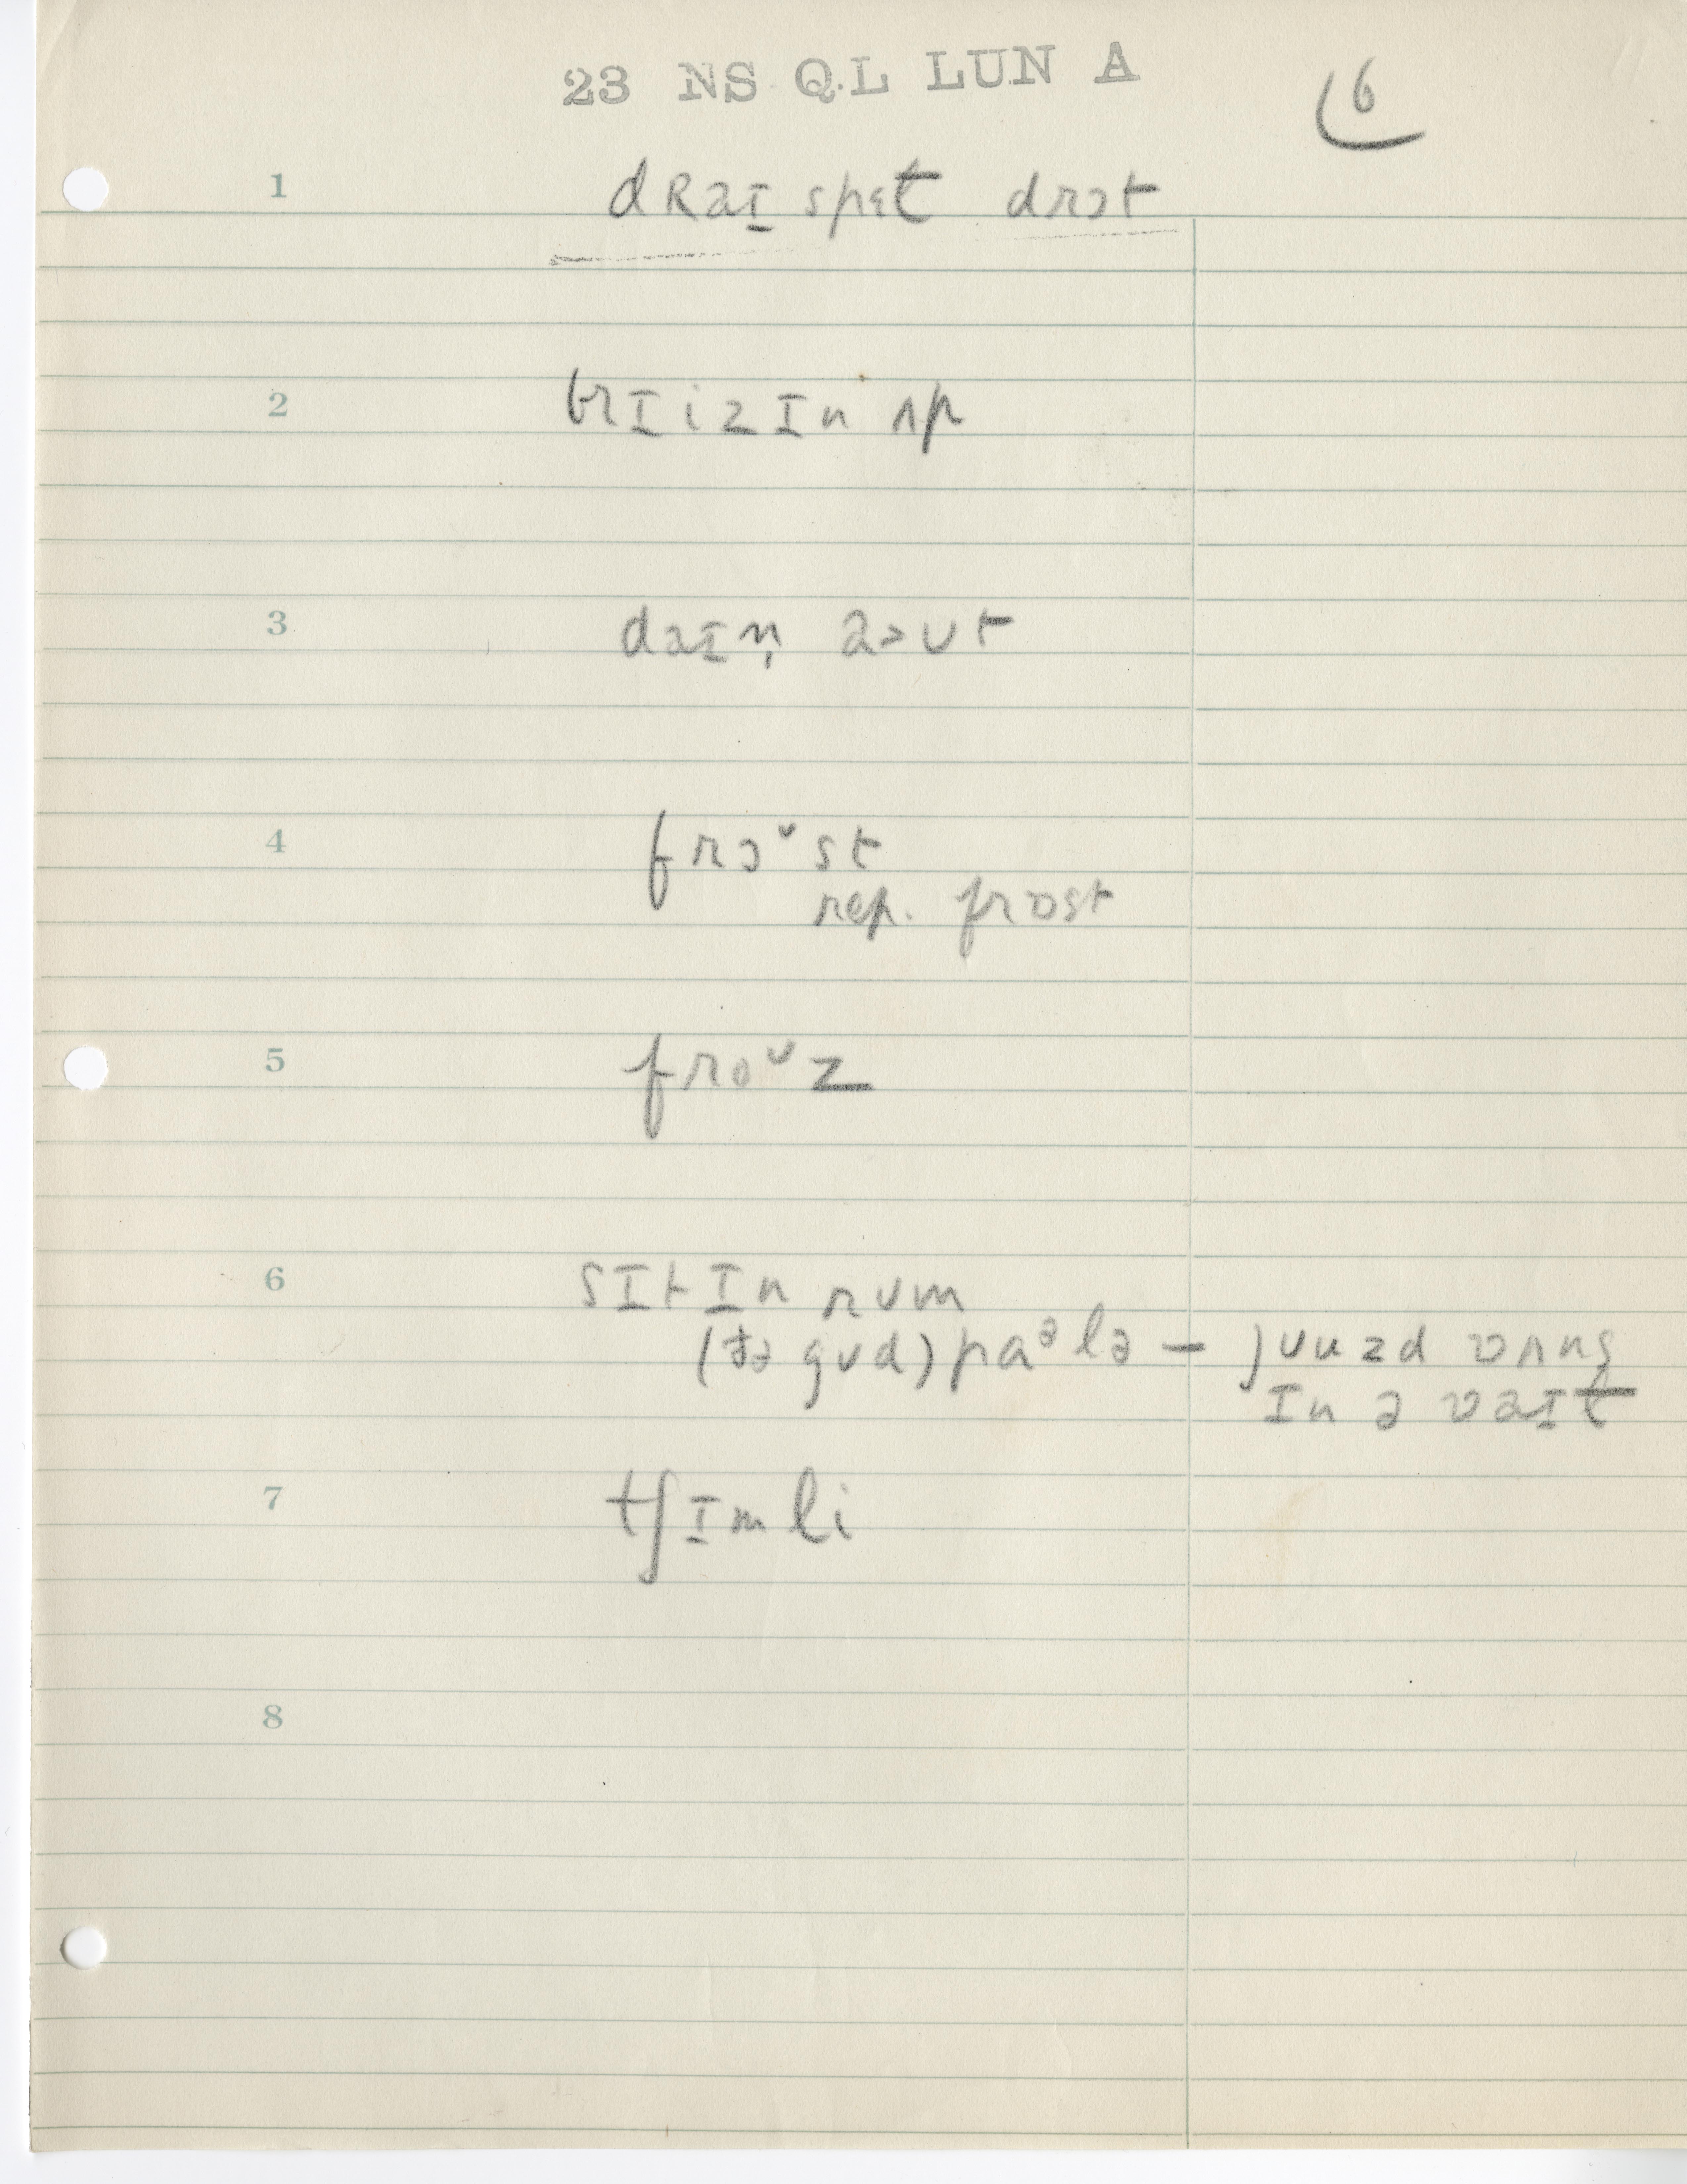 23 NS Q.L LUN A
6
1 dRaɪ spɛt drɔt
2 brɪizɪn ʌp
3 daɪn̩ aɔʊt
4 frɔᶷst
rep. frɒst
5 froᶷz
6 sɪtɪn rʊm
(ðə gʊd) paᵊlə – jʊuzd wʌns
ɪn ə waɪt
7 tʃɪmli
8